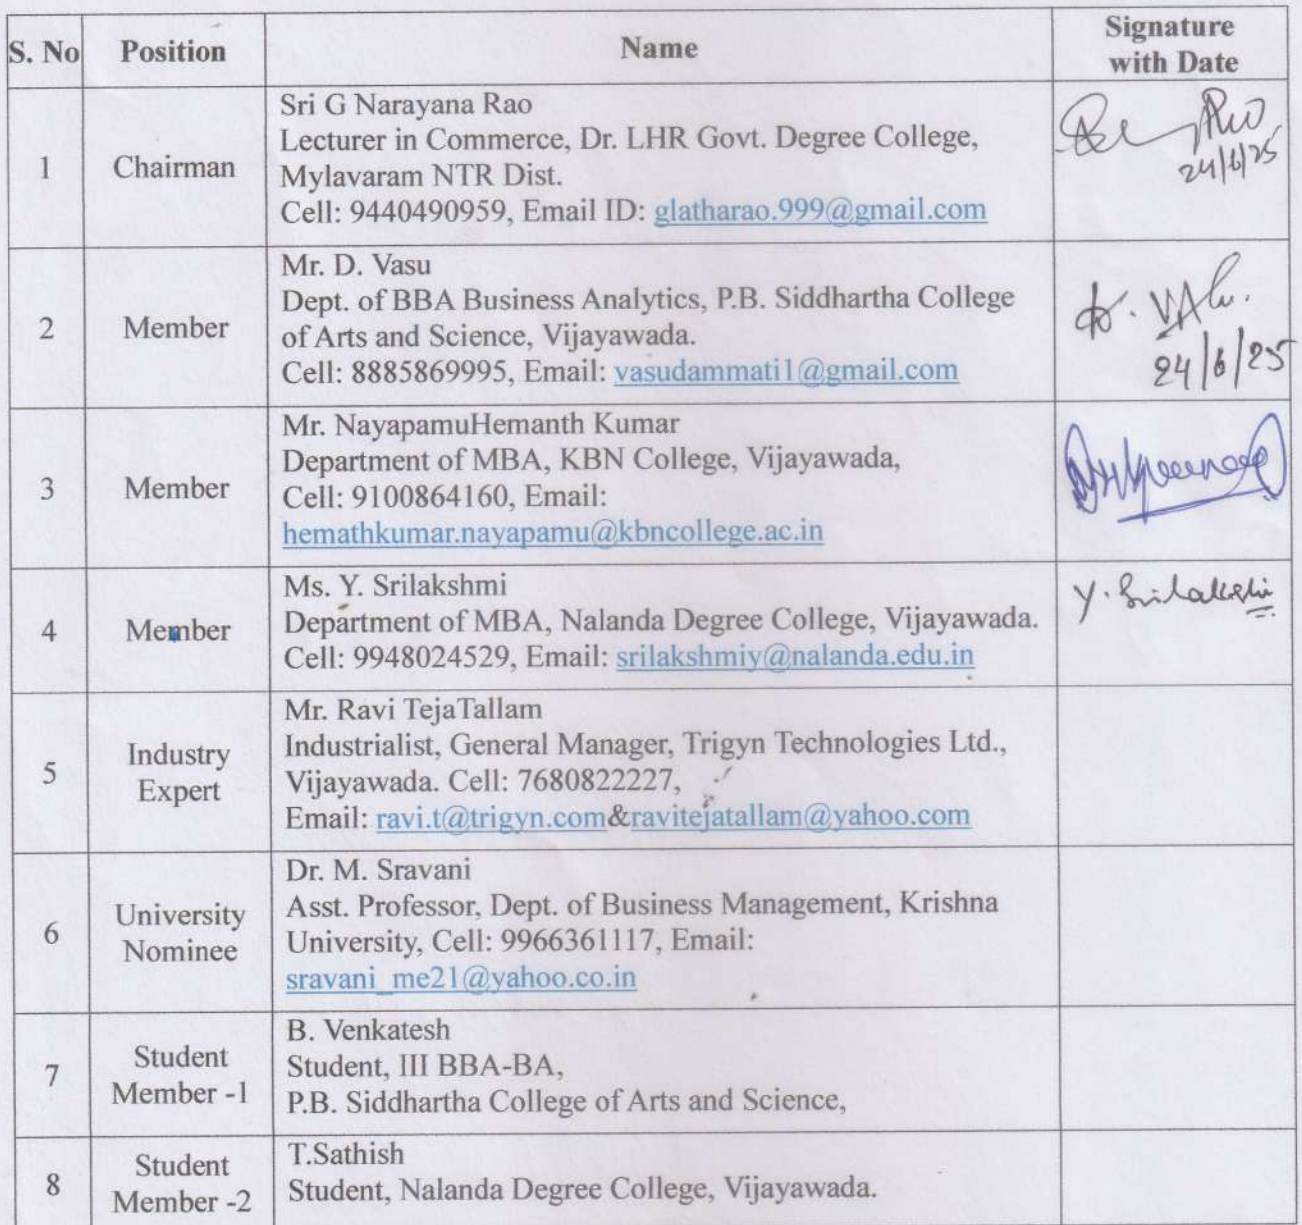 S. No Position Name Signature with Date
1 Chairman Sri G Narayana Rao
Lecturer in Commerce, Dr. LHR Govt. Degree College,
Mylavaram NTR Dist.
Cell: 9440490959, Email ID: glatharao.999@gmail.com
24/6/25
2 Member Mr. D. Vasu
Dept. of BBA Business Analytics, P.B. Siddhartha College
of Arts and Science, Vijayawada.
Cell: 8885869995, Email: vasudammati1@gmail.com
24/6/25
3 Member Mr. NayapamuHemanth Kumar
Department of MBA, KBN College, Vijayawada,
Cell: 9100864160, Email:
hemathkumar.nayapamu@kbncollege.ac.in
4 Member Ms. Y. Srilakshmi
Department of MBA, Nalanda Degree College, Vijayawada.
Cell: 9948024529, Email: srilakshmiy@nalanda.edu.in
5 Industry Expert Mr. Ravi TejaTallam
Industrialist, General Manager, Trigyn Technologies Ltd.,
Vijayawada. Cell: 7680822227,
Email: ravi.t@trigyn.com&ravitejatallam@yahoo.com
6 University Nominee Dr. M. Sravani
Asst. Professor, Dept. of Business Management, Krishna
University, Cell: 9966361117, Email:
sravani_me21@yahoo.co.in
7 Student Member -1 B. Venkatesh
Student, III BBA-BA,
P.B. Siddhartha College of Arts and Science,
8 Student Member -2 T.Sathish
Student, Nalanda Degree College, Vijayawada.